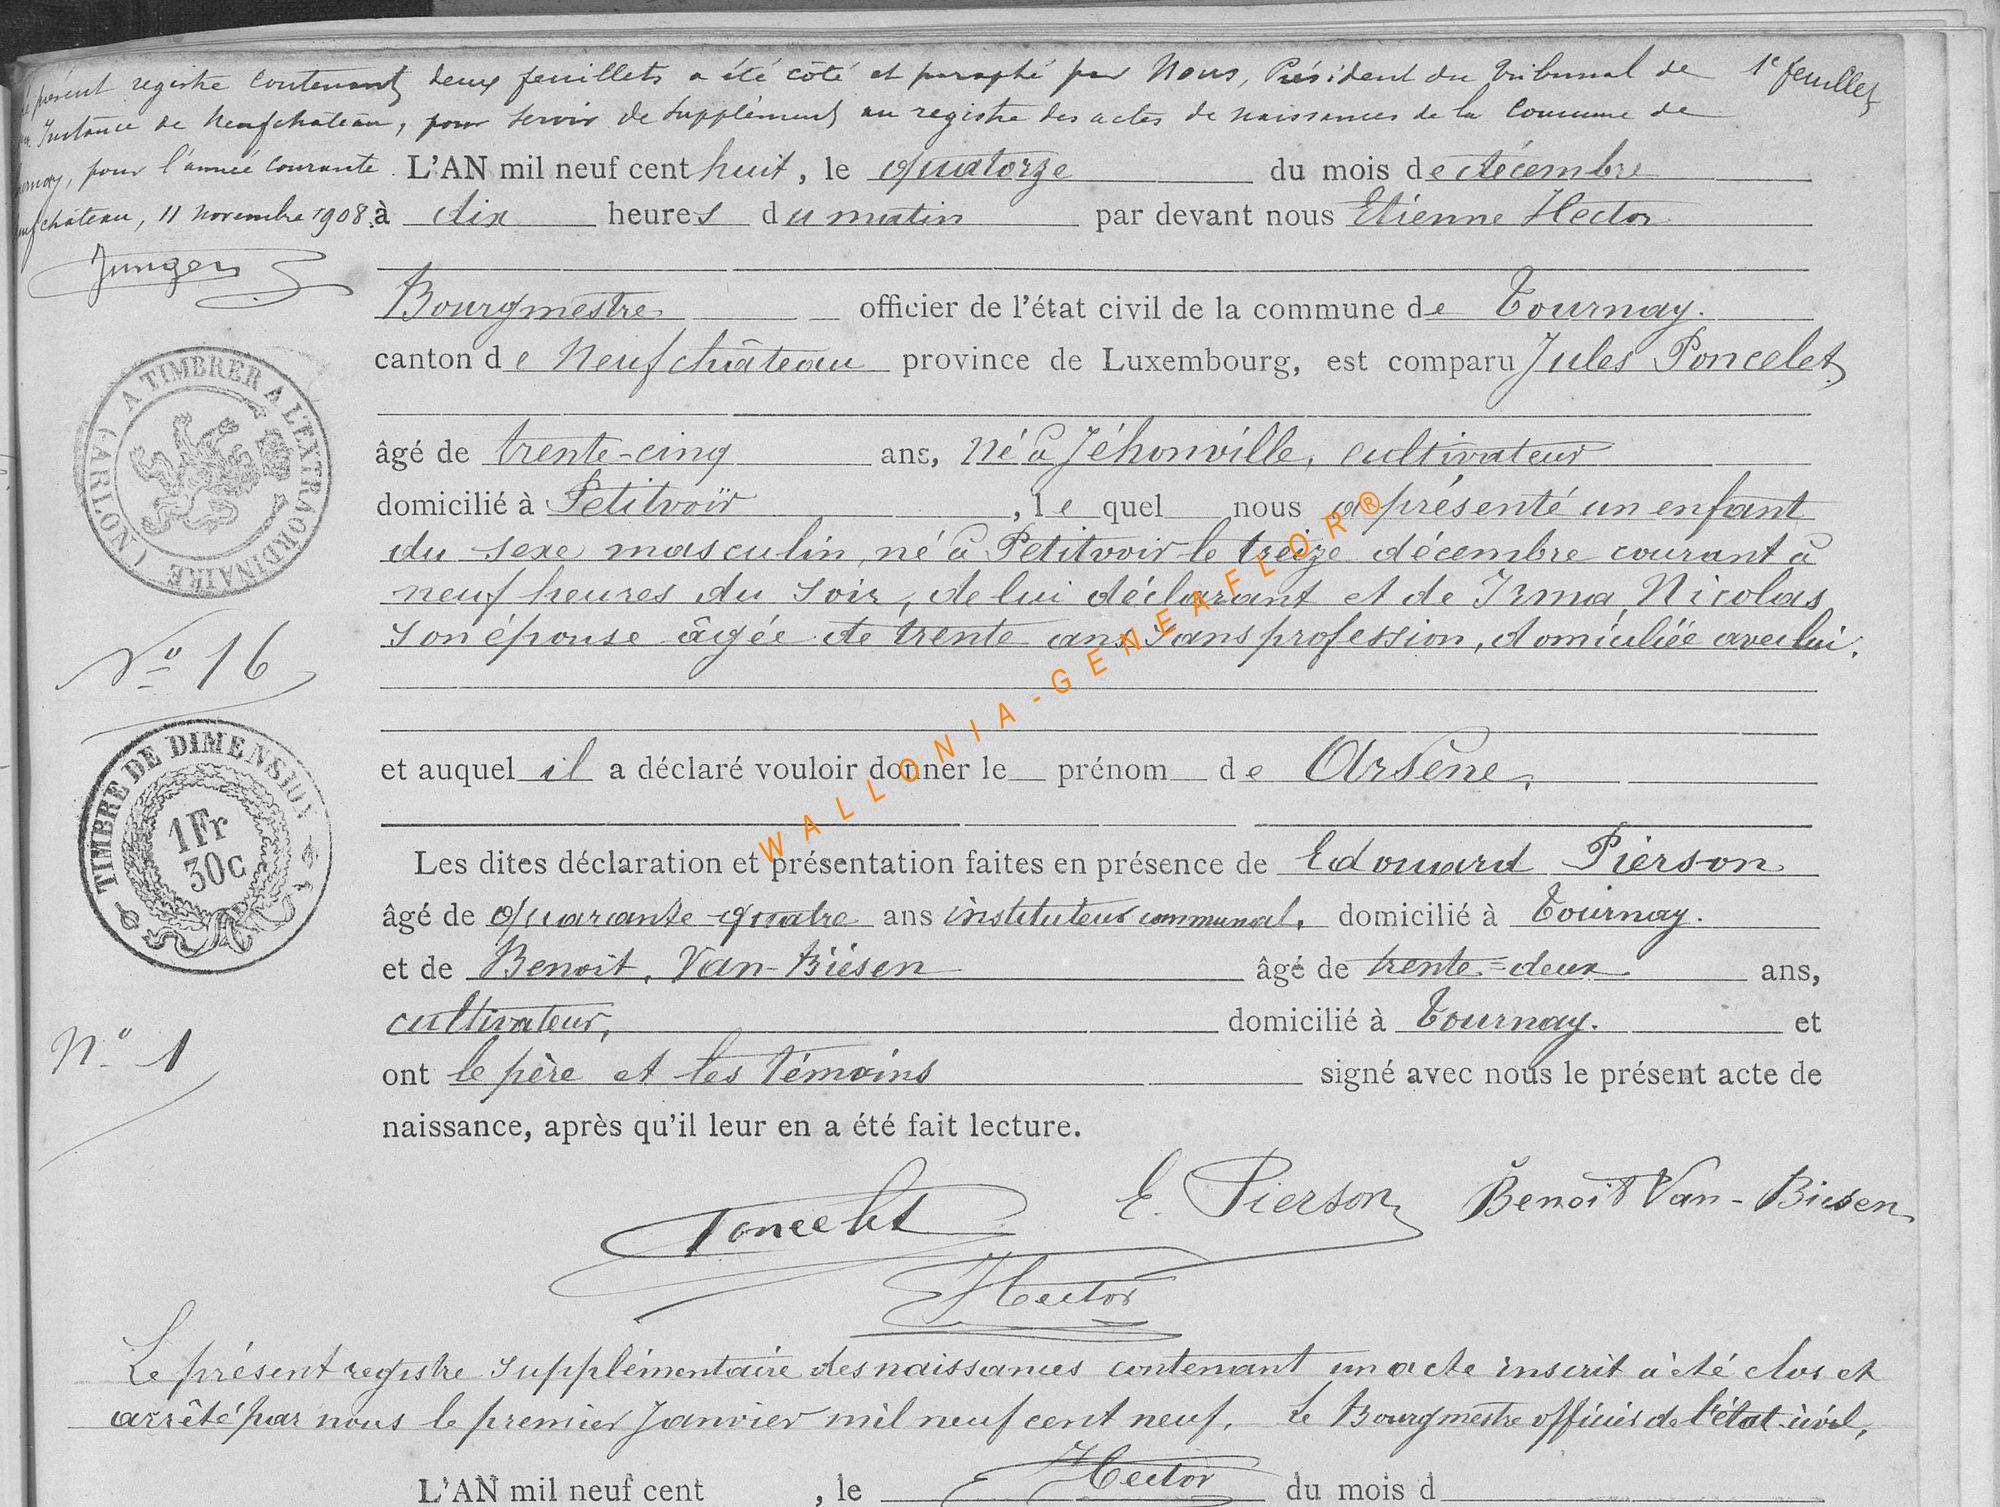 présent registre contenant deux feuillets a été côté et paraphé par Nous, Président du Tribunal de 1e feuillet
Instance de Neufchateau, pour servir de supplément au registre des actes de naissances de la Commune de
pour l'année courante. L'AN mil neuf cent huit, le quatorze du mois de décembre
chateau, 11 novembre 1908. à dix heures du matin par devant nous Etienne Hector
Jungers
Bourgmestre officier de l'état civil de la commune de Tournay.
canton de Neufchâteau province de Luxembourg, est comparu Jules Poncelet
âgé de trente-cinq ans, né à Jéhonville, cultivateur
domicilié à Petitvoir, le quel nous a présenté un enfant
du sexe masculin, né à Petitvoir le treize décembre courant à
neuf heures du soir, de lui déclarant et de Irma Nicolas
son épouse âgée de trente ans sans profession, domiciliée avec lui.
A TIMBRER A L'EXTRAORDINAIRE (NOTRE-)
No 16
et auquel il a déclaré vouloir donner le prénom de Arsène,
TIMBRE DE DIMENSION
1 Fr
30c
Les dites déclaration et présentation faites en présence de Edouard Pierson
âgé de quarante-quatre ans instituteur communal, domicilié à Tournay.
et de Benoit, Van-Biesen âgé de trente=deux ans,
cultivateur, domicilié à Tournay. et
No 1
ont le père et les témoins signé avec nous le présent acte de
naissance, après qu'il leur en a été fait lecture.
Poncelet E. Pierson Benoit Van-Biesen
Hector
Le présent registre supplémentaire des naissances contenant un acte inscrit a été clos et
arrêté par nous le premier Janvier mil neuf cent neuf. Le Bourgmestre officier de l'état civil,
Hector
L'AN mil neuf cent , le du mois d
WALLONIA-GENEAFLOR®